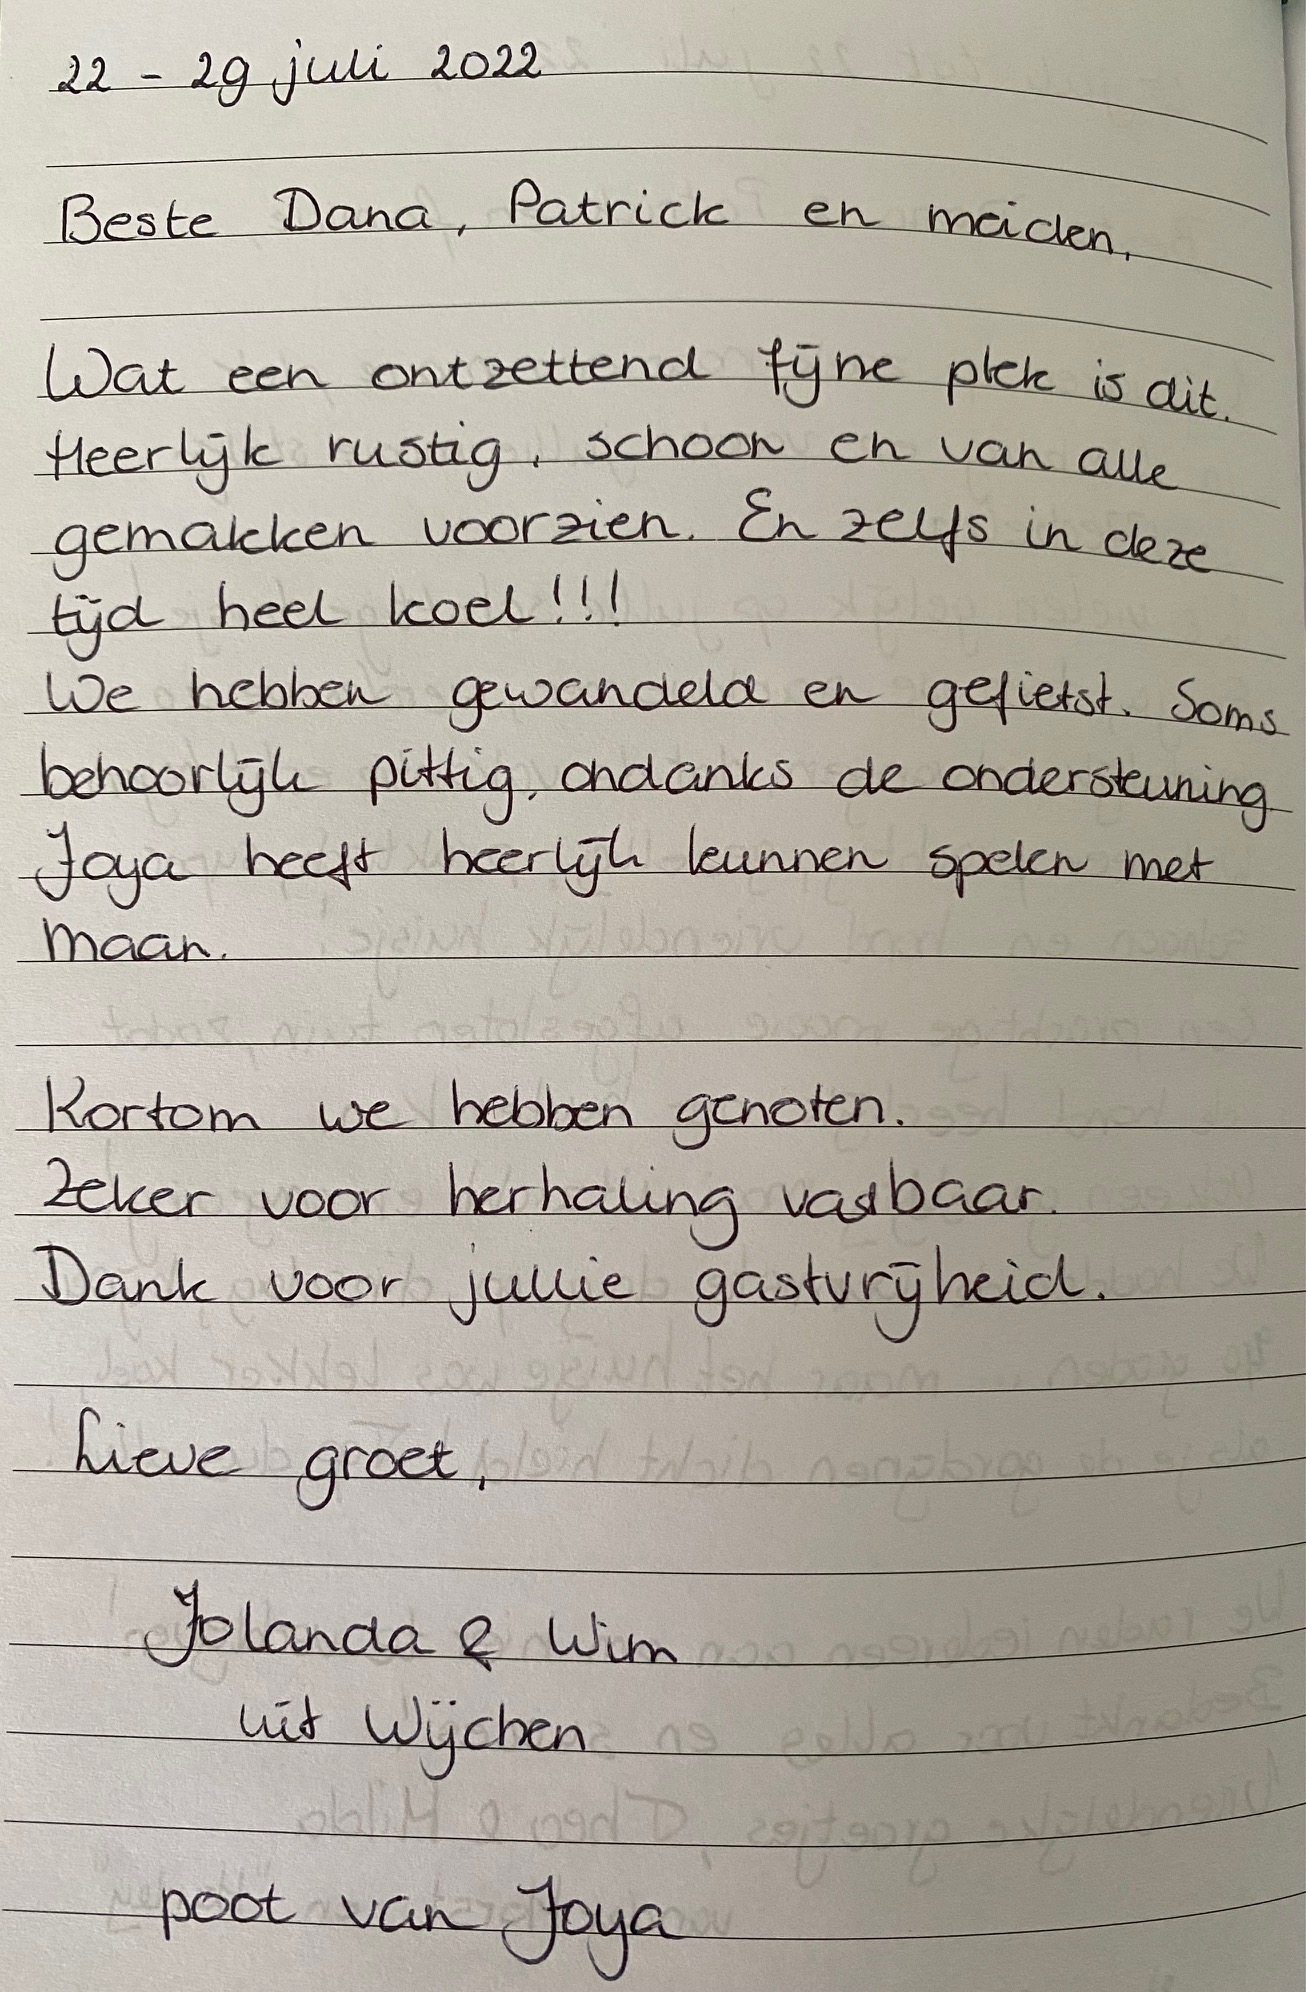 22 - 29 juli 2022
Beste Dana, Patrick en meiden,
Wat een ontzettend fijne plek is dit.
Heerlijk rustig, schoon en van alle
gemakken voorzien. En zelfs in deze
tijd heel koel!!!
We hebben gewandeld en gefietst. Soms
behoorlijk pittig, ondanks de ondersteuning
Joya heeft heerlijk kunnen spelen met
Maan.
Kortom we hebben genoten.
Zeker voor herhaling vatbaar.
Dank voor jullie gastvrijheid.
Lieve groet,
Jolanda & Wim
uit Wijchen
poot van Joya